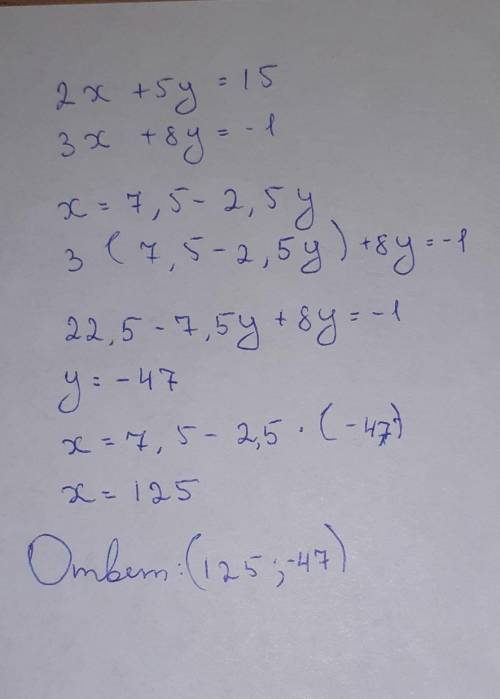 2x + 5y = 15
3x + 8y = -1
x = 7,5 - 2,5y
3 ( 7,5 - 2,5y ) + 8y = -1
22,5 - 7,5y + 8y = -1
y = -47
x = 7,5 - 2,5 · (-47)
x = 125
Ответ: (125; -47)